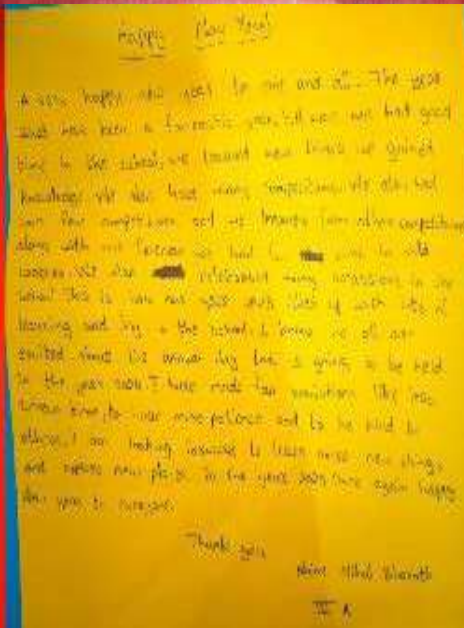 Happy New Year!
A very happy new year to one and all. The year
that has been a fantastic year, till now we had good
time in the school, we learned new things we gained
knowledge. We also had many competitions. We also had
won few competitions and we learned from other competitions
along with our we had to
We also celebrated many occasions in the
school. This is how our year was filled up with lots of
learning and joy in the school. I know we all are
excited about the annual day that is going to be held
in the year I have made few resolutions like less
screen time, to have more patience and to be kind to
others. I am looking forward to learn more new things
and explore new places in the year once again happy
new year to everyone.
Thank you
Name
IV A